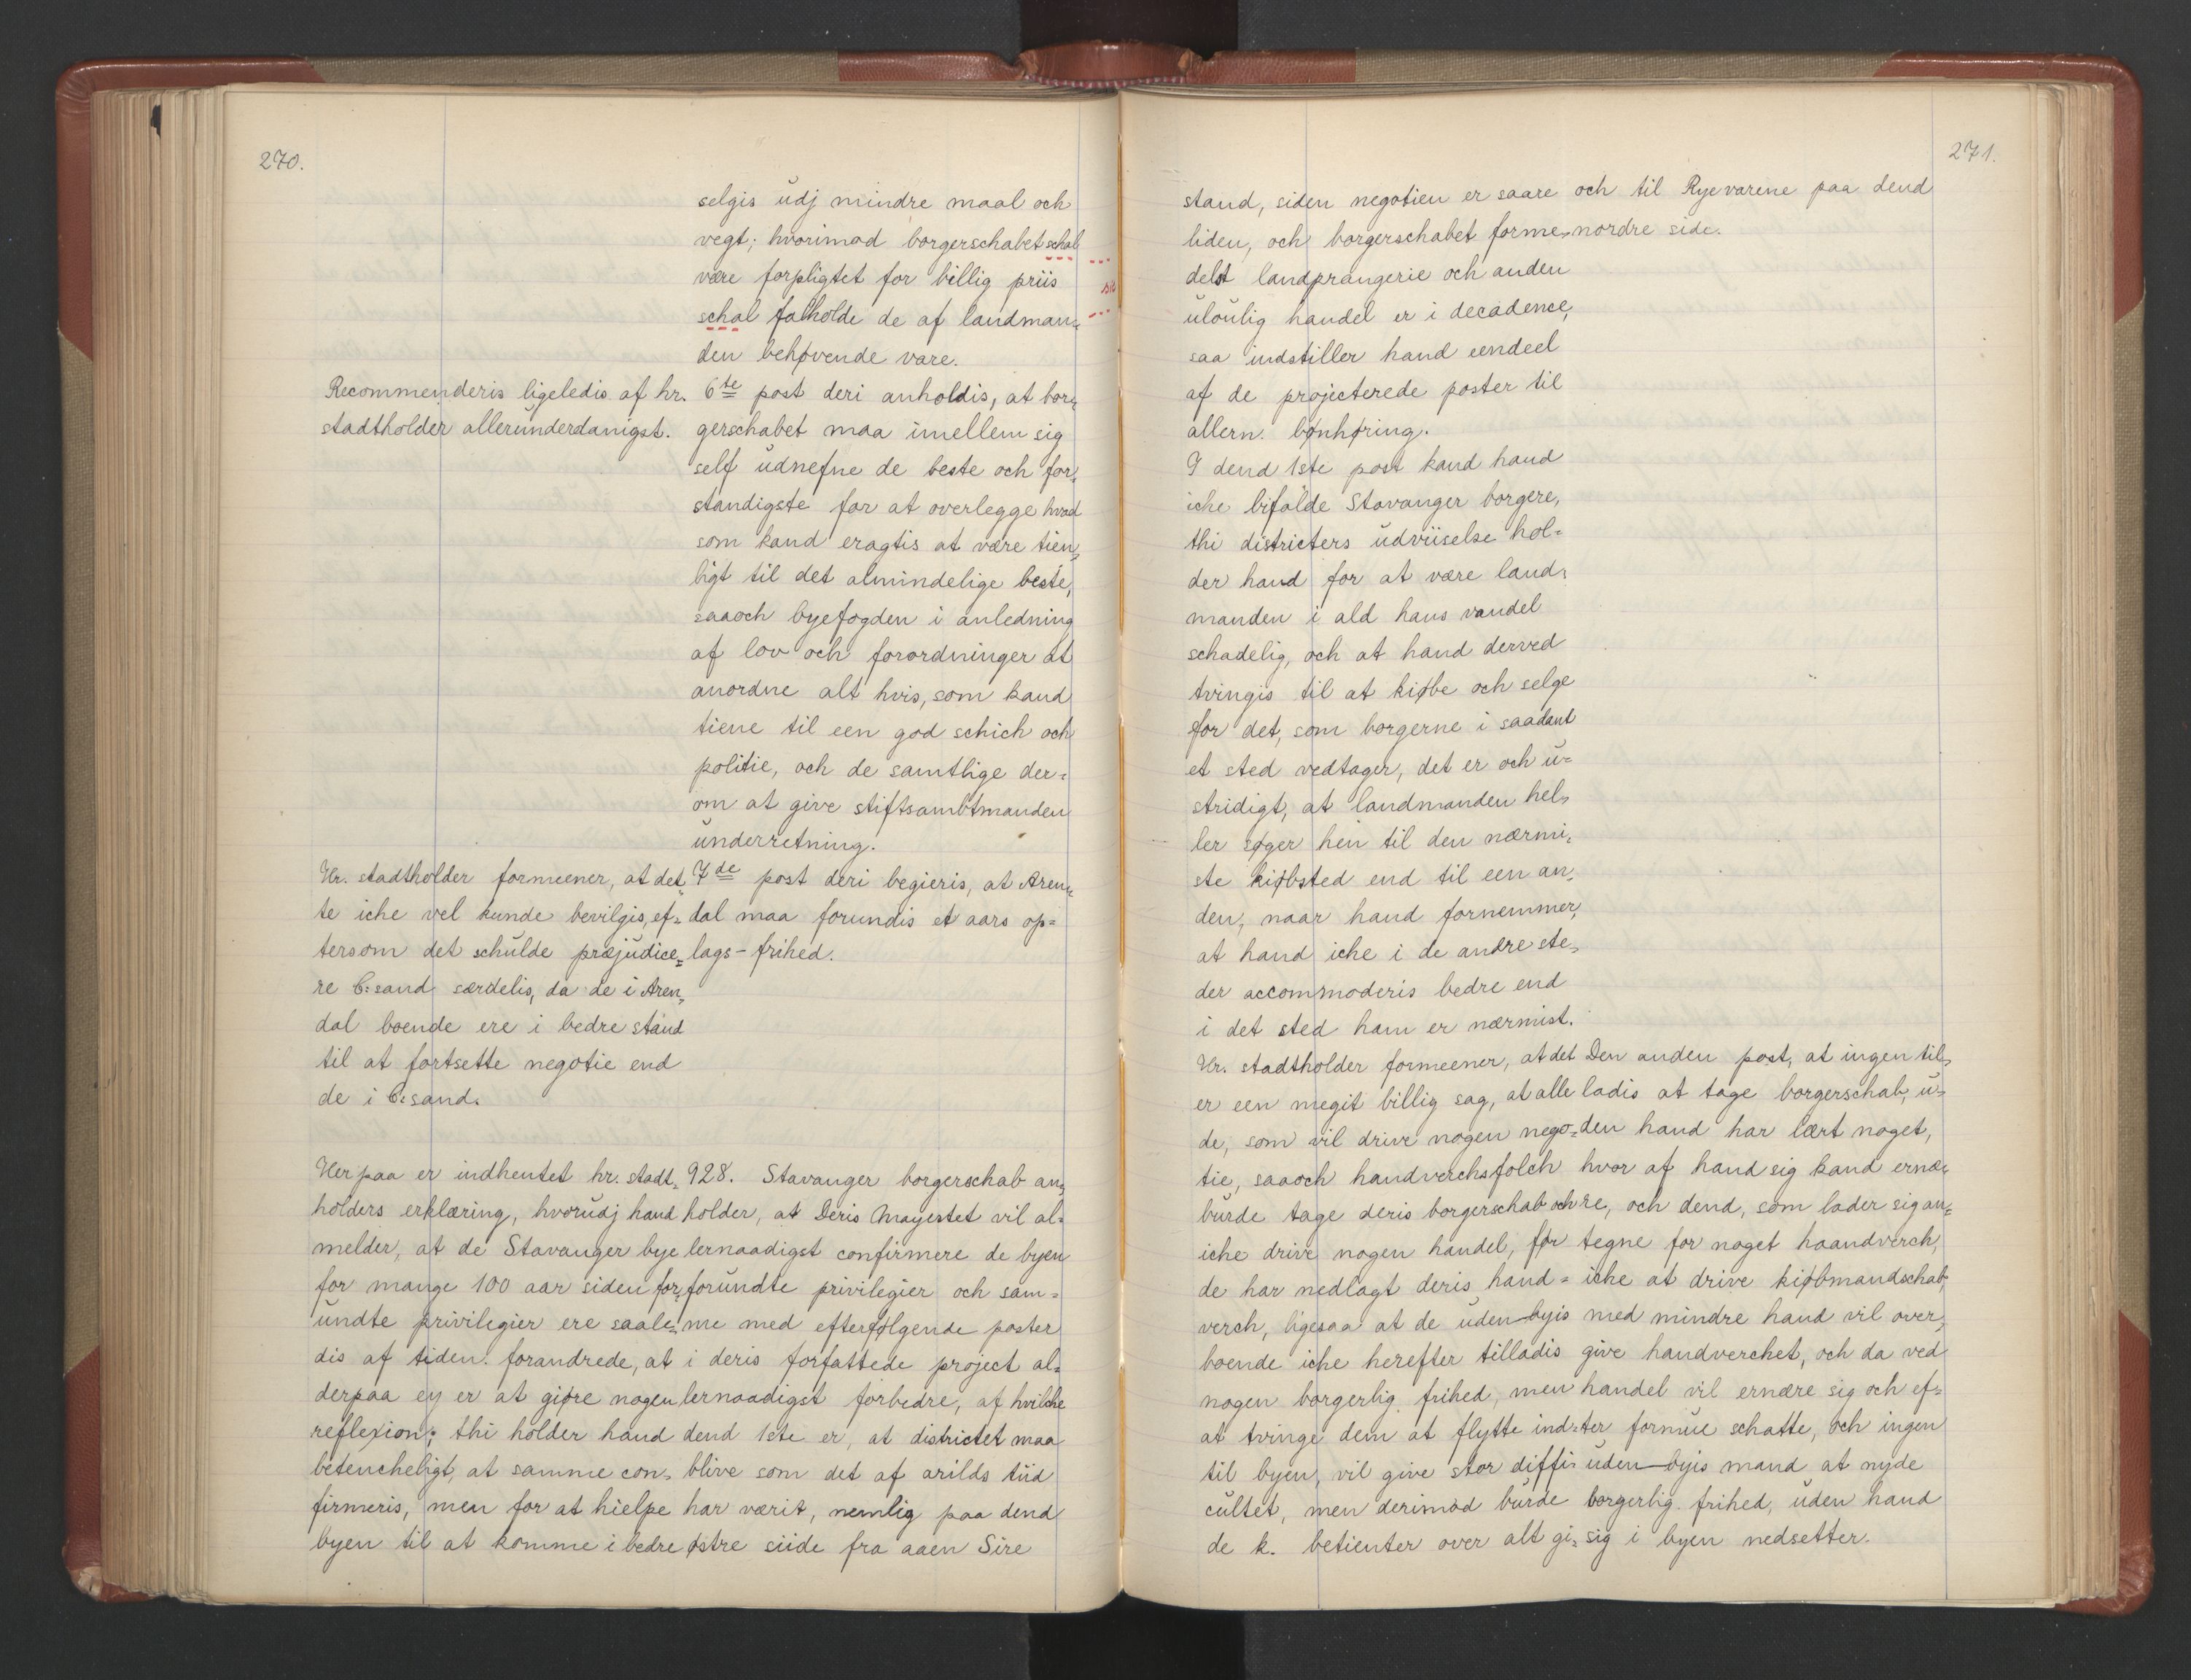 270.
selgis udj mindre maal och
vegt; hvorimod borgerschabet schal
være forpligtet for billig priis
schal falholde de af landman=
den behøvende vare.
Recommenderis ligeledis af hr.
stadtholder allerunderdanigst.
6te post deri anholdis, at bor=
gerschabet maa imellem sig
self udnefne de beste och for=
standigste for at overlegge hvad
som kand eragtis at være tien=
ligt til det almindelige beste,
saaoch byefogden i anledning
af lov och forordninger at
anordne alt hvis, som kand
tiene til een god schich och
politie, och de samtlige der=
om at give stiftsambtmanden
underretning.
Hr. stadtholder formeener, at det=
te iche vel kunde bevilgis, ef=
tersom det schulde præjudice=
re C:sand særdelis, da de i Aren=
dal boende ere i bedre stand
til at fortsette negotie end
de i C:sand.
7de post deri begieris, at Aren=
dal maa forundis et aars op=
lags-frihed.
Herpaa er indhentet hr. stadt=
holders erklæring, hvorudj hand
melder, at de Stavanger bye
for mange 100 aar siden for=
undte privilegier ere saale=
dis af tiden forandrede, at
derpaa ey er at giøre nogen
reflexion; thi holder hand
betencheligt, at samme con=
firmeris, men for at hielpe
byen til at komme i bedre
928. Stavanger borgerschab an=
holder, at Deris Mayestet vil al=
lernaadigst confirmere de byen
forundte privilegier och sam=
me med efterfølgende poster
i deris forfattede project al=
lernaadigst forbedre, af hvilche
dend 1ste er, at districtet maa
blive som det af arilds tiid
har værit, nemlig paa dend
østre siide fra aaen Sire
271.
stand, siden negotien er saare
liden, och borgerschabet forme=
delst landprangerie och anden
uloulig handel er i decadence,
saa indstiller hand eendeel
af de projecterede poster til
allern. bønhøring.
I dend 1ste post kand hand
iche bifalde Stavanger borgere,
thi districters udviiselse hol=
der hand for at være land=
manden i ald hans vandel
schadelig, och at hand derved
tvingis til at kiøbe och selge
for det, som borgerne i saadant
et sted vedtager, det er och u=
stridigt, at landmanden hel=
ler søger hen til den nærmi=
ste kiøbsted end til een an=
den, naar hand fornemmer,
at hand iche i de andre ste=
der accommoderis bedre end
i det sted ham er nærmist.
och til Ryevarene paa dend
nordre side.
Hr. stadtholder formeener, at det
er een megit billig sag, at alle
de, som vil drive nogen nego=
tie, saaoch handverchsfolch
burde tage deris borgerschab och
iche drive nogen handel, før
de har nedlagt deris hand=
verch, ligesaa at de uden-byis
boende iche herefter tilladis
nogen borgerlig frihed, men
at tvinge dem at flytte ind
til byen, vil give stor diffi=
cultet, men derimod burde
de k. betienter over alt gi=
Den anden post, at ingen til=
ladis at tage borgerschab, u=
den hand har lært noget,
hvor af hand sig kand ernæ=
re, och dend, som lader sig an=
tegne for noget haandverch,
iche at drive kiøbmandschab,
med mindre hand vil over=
give handverchet, och da ved
handel vil ernære sig och ef=
ter formue schatte, och ingen
uden-byis mand at nyde
borgerlig frihed, uden hand
sig i byen nedsetter.